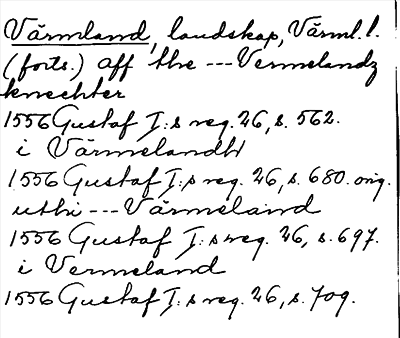 Värmland, landskap, Värml. l.
(forts.) aff the --- Vermelandz
knechter
1556 Gustaf I:s reg. 26, s. 562.
i Värmelandh
1556 Gustaf I:s reg. 26, s. 680. orig.
uthi --- Värmeland
1556 Gustaf I:s reg. 26, s. 697.
i Vermeland
1556 Gustaf I:s reg. 26, s. 709.